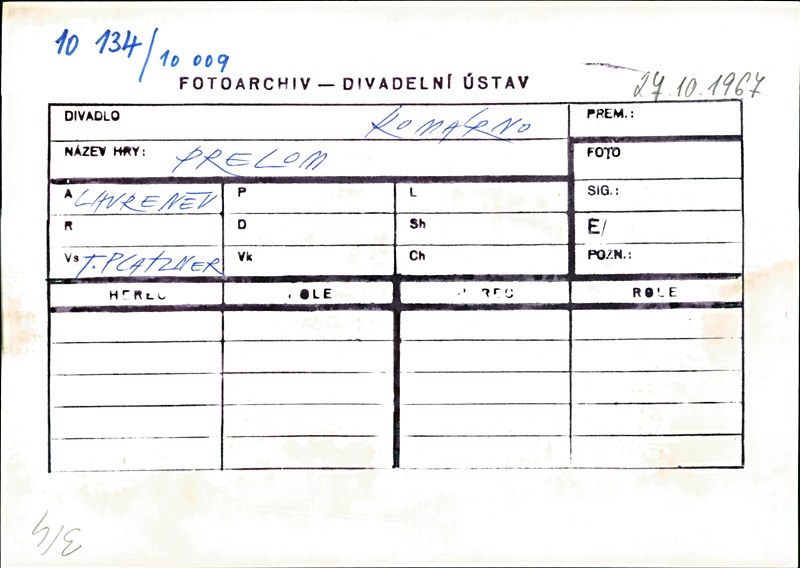 10 134/10 009
FOTOARCHIV — DIVADELNÍ ÚSTAV
27.10.1967
DIVADLO KOMÁRNO PREM.:
NÁZEV HRY: PRELOM FOTO
A LAVRENĚV P L SIG.:
R D Sh E/
Vs T. PLATZNER Vk Ch POZN.:
HEREC ROLE HEREC ROLE
3/4